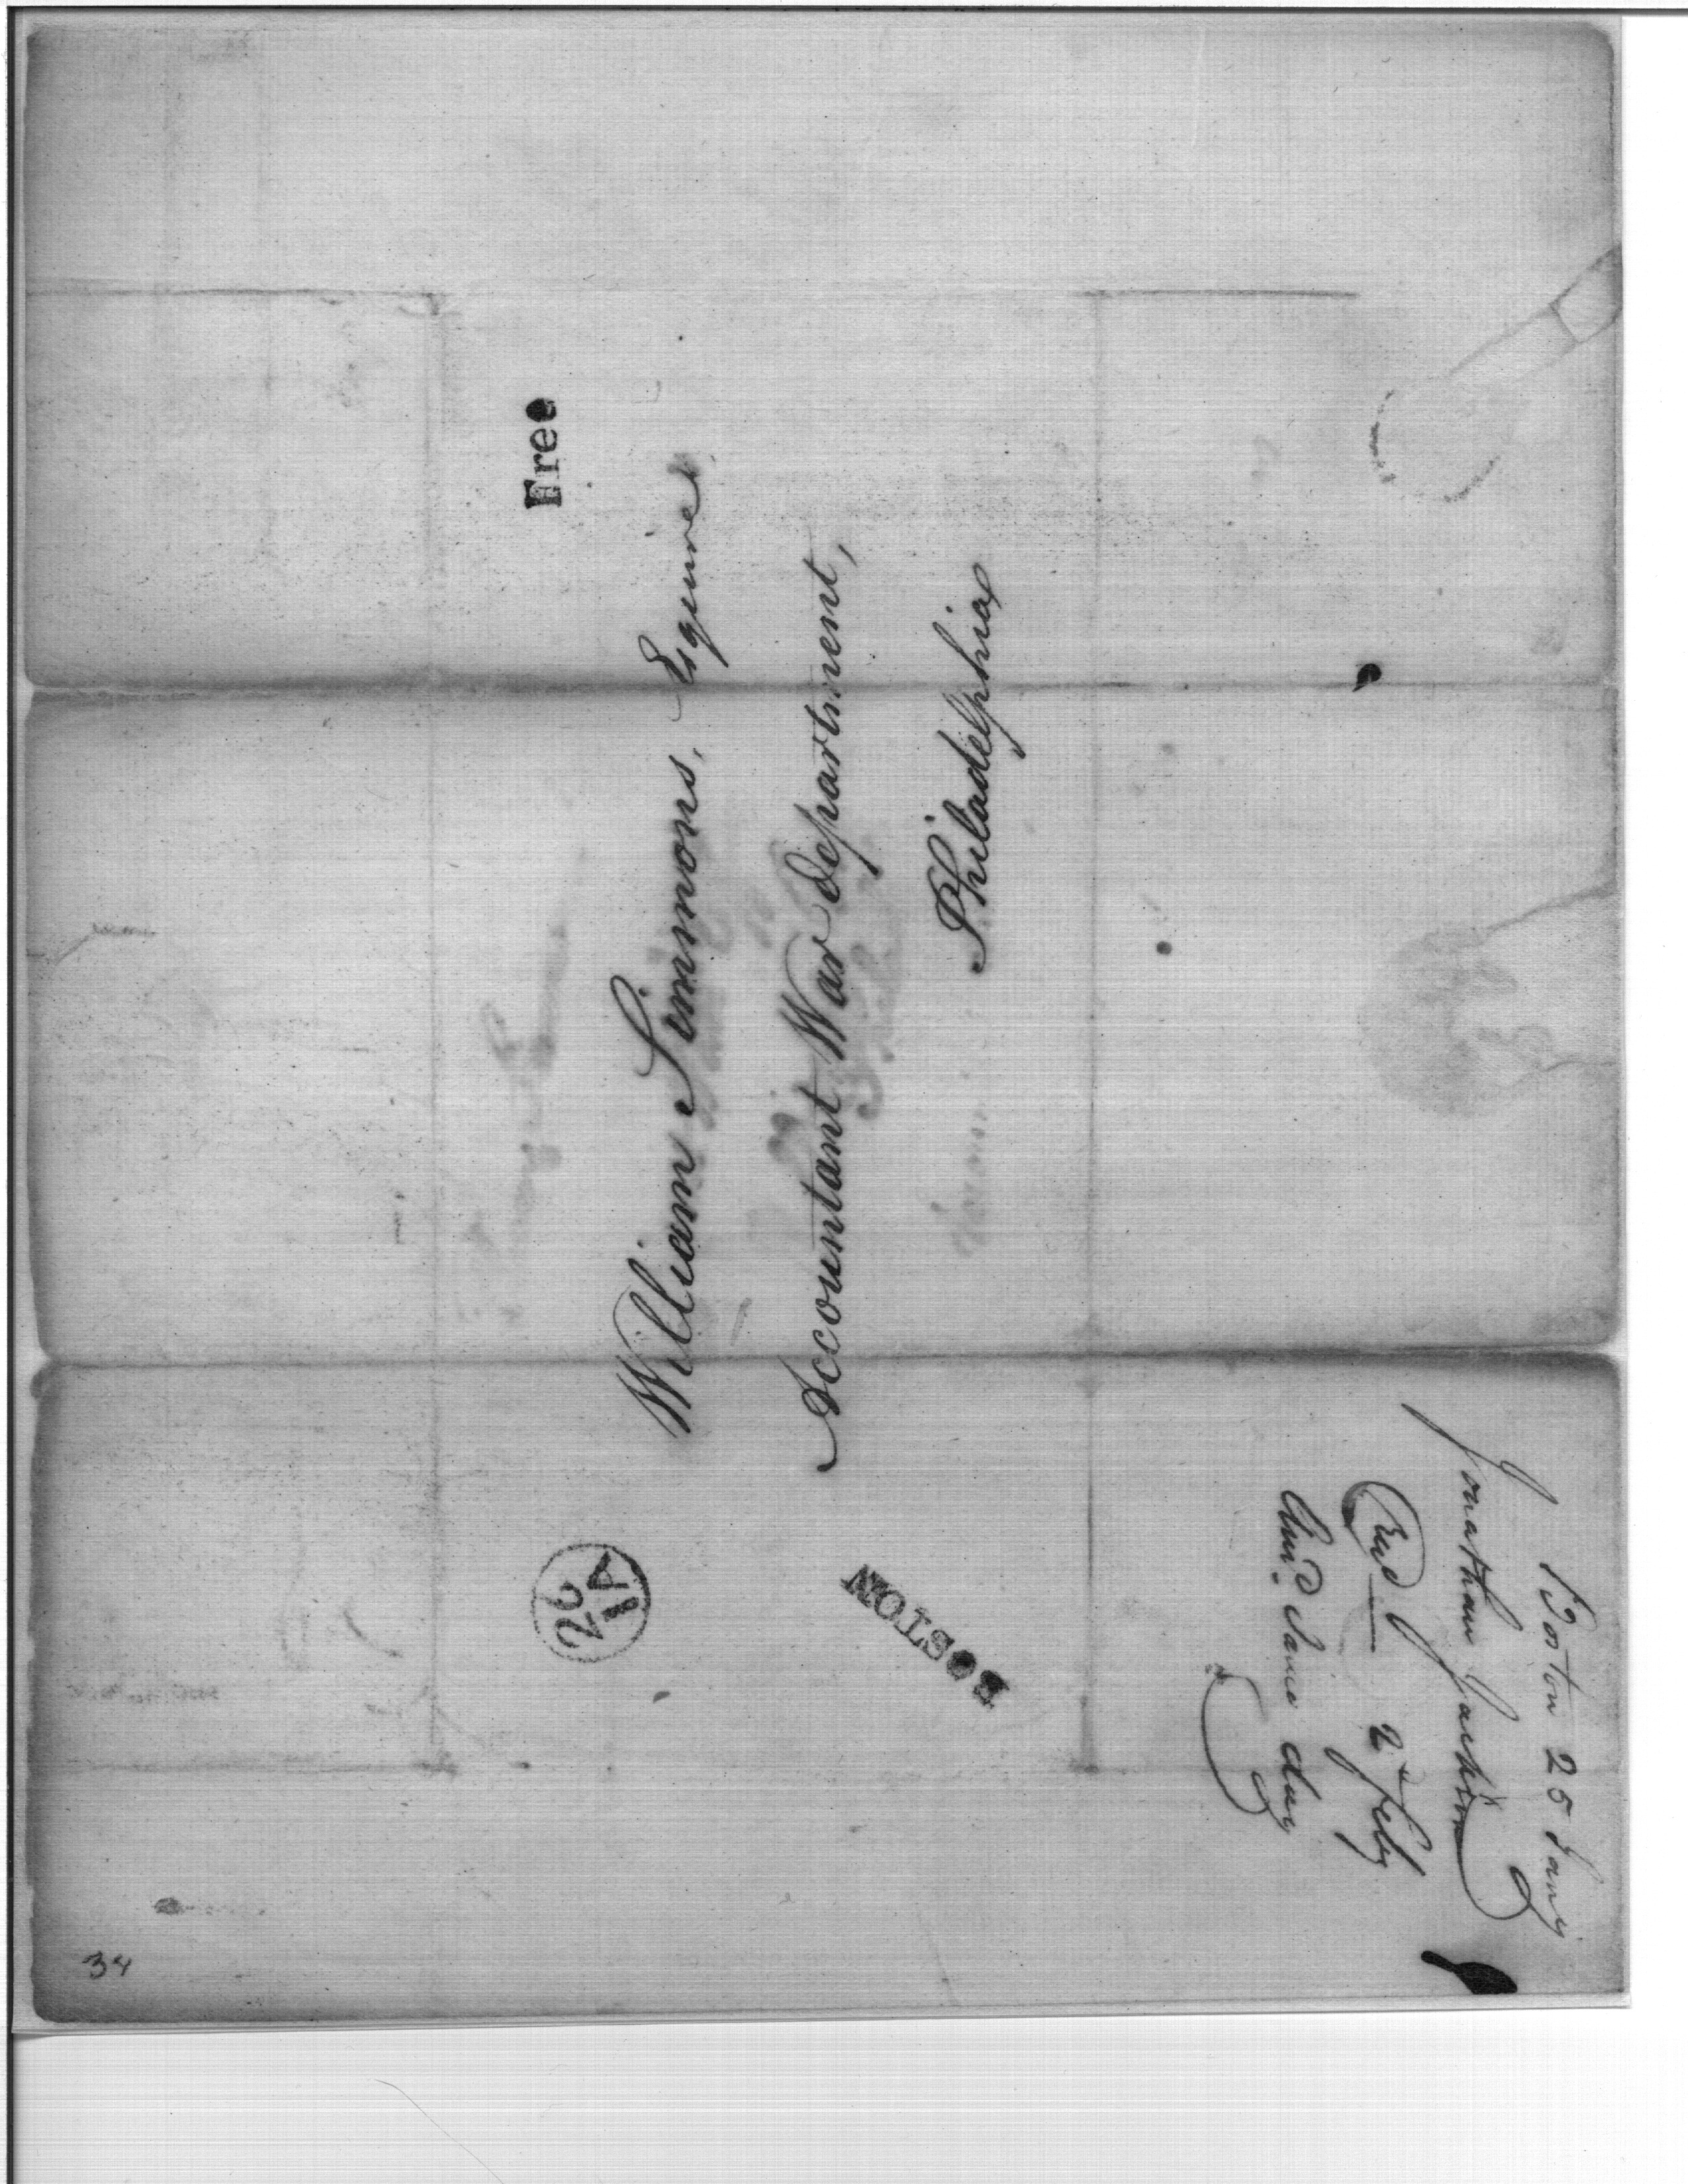 Free
William Simmons, Esquire
Accountant War department,
Philadelphia
BOSTON
Boston 25 Jany
Jonathan Jackson
Recd 2d feby
Ansd same day
34